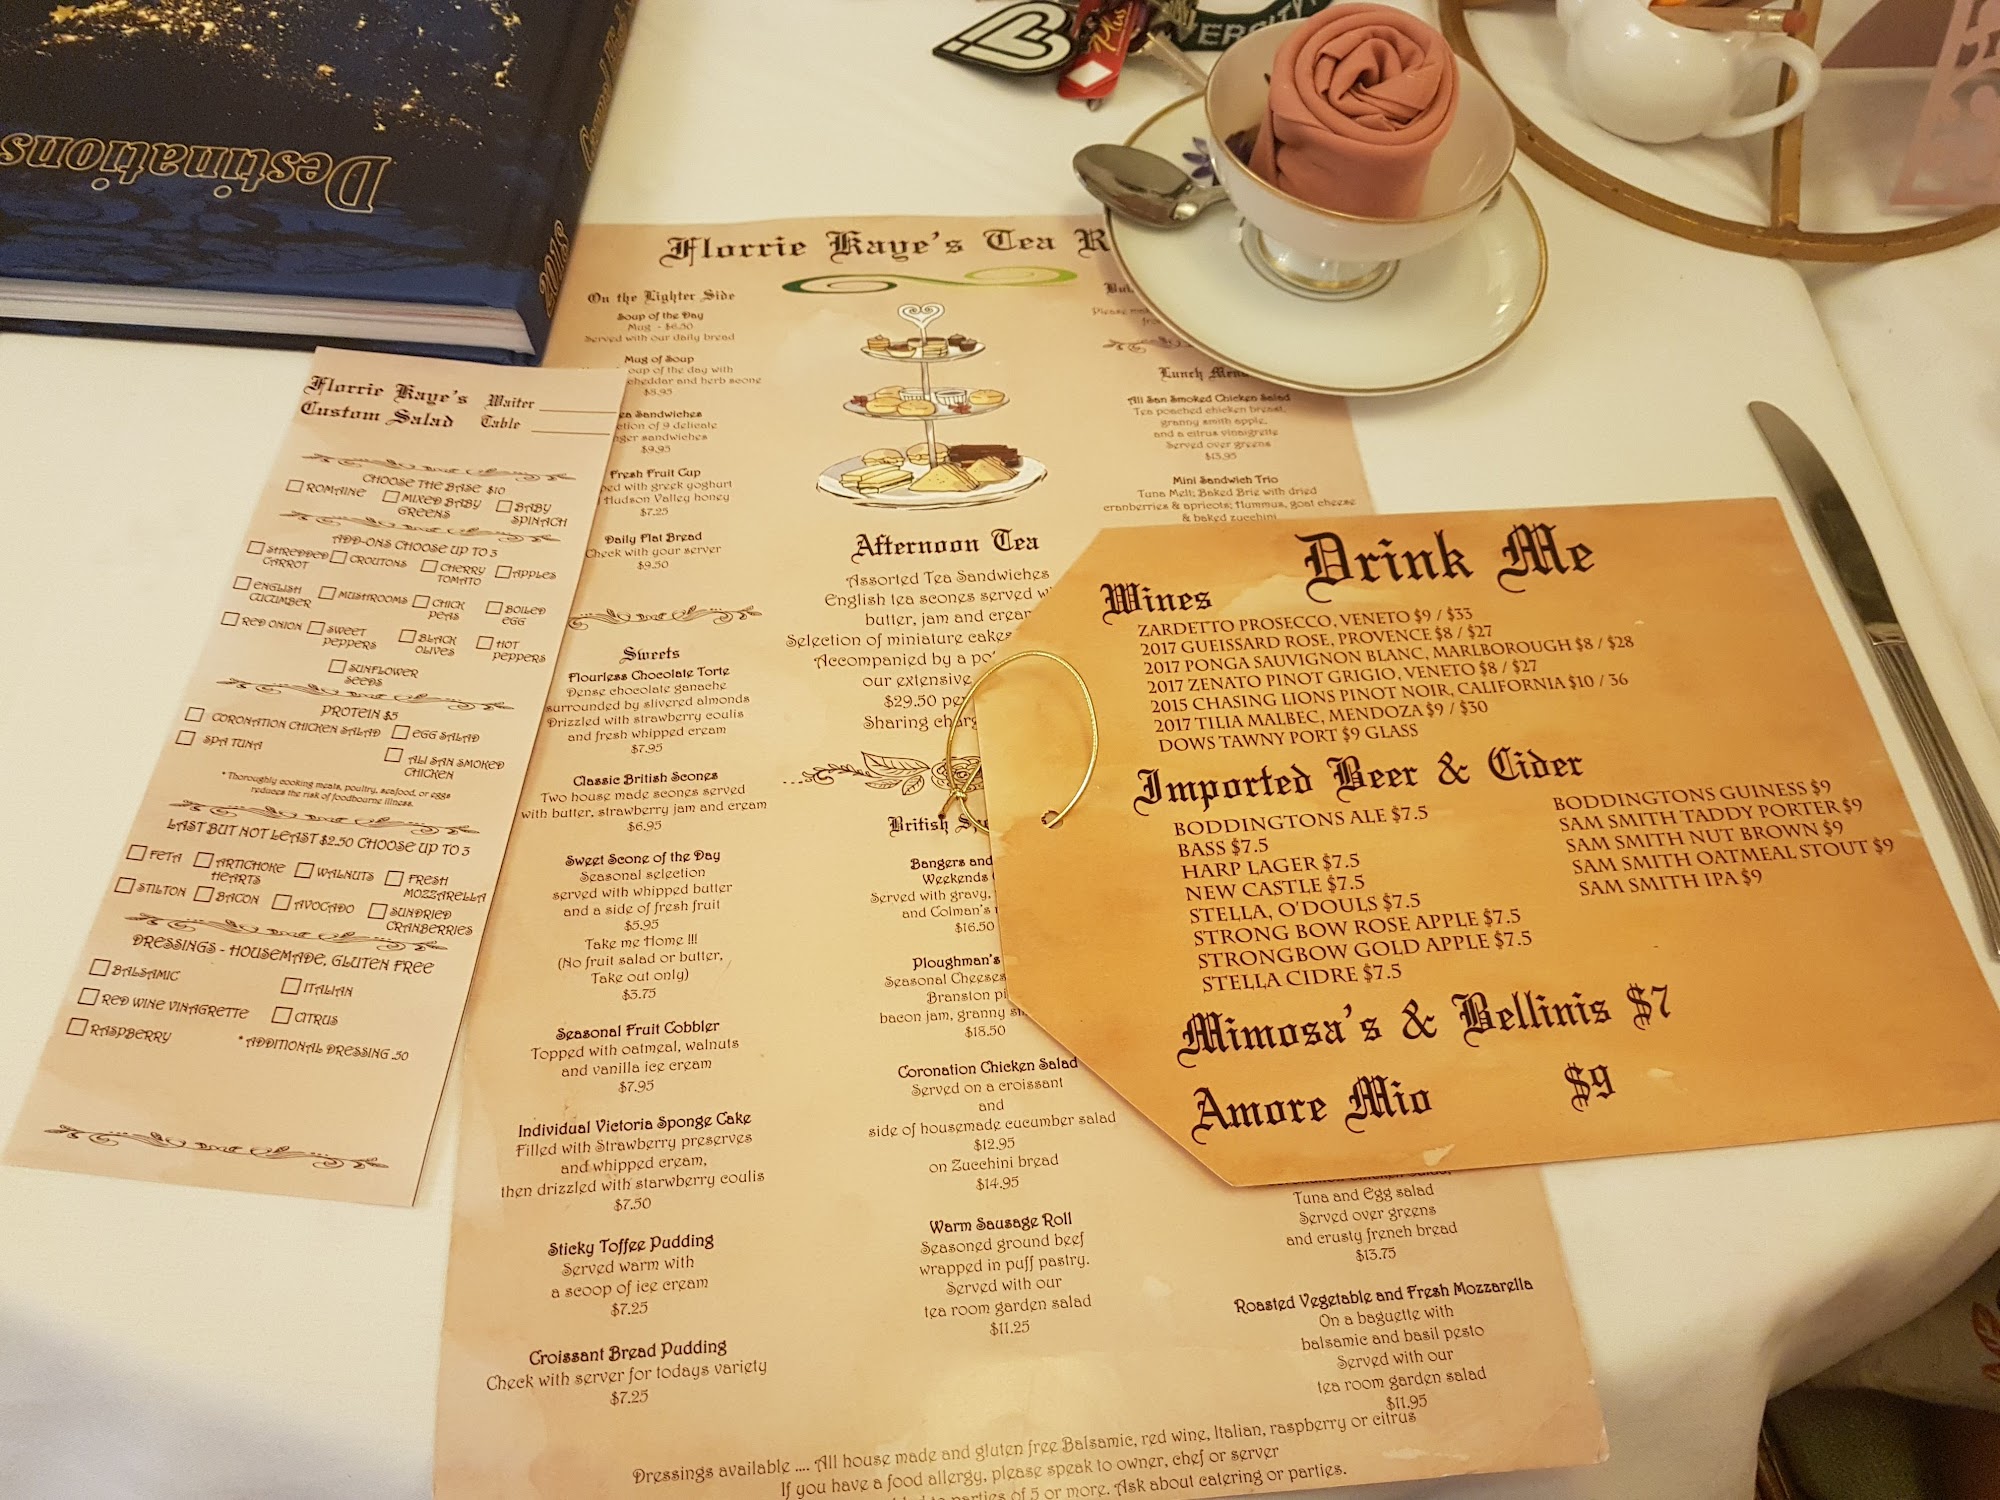 Destinations
2018
VERSITY
Plus
Florrie Kaye's Tea R
On the Lighter Side
Soup of the Day
Mug - $6.50
Served with our daily bread
Mug of Soup
oup of the day with
cheddar and herb scone
$8.95
ea Sandwiches
ction of 9 delicate
nger sandwiches
$9.95
Fresh Fruit Cup
ped with greek yoghurt
Hudson Valley honey
$7.25
Daily Flat Bread
Check with your server
$9.50
Sweets
Flourless Chocolate Torte
Dense chocolate ganache
surrounded by slivered almonds
Drizzled with strawberry coulis
and fresh whipped cream
$7.95
Classic British Scones
Two house made scones served
with butter, strawberry jam and cream
$6.95
Sweet Scone of the Day
Seasonal selection
served with whipped butter
and a side of fresh fruit
$5.95
Take me Home !!!
(No fruit salad or butter,
Take out only)
$3.75
Seasonal Fruit Cobbler
Topped with oatmeal, walnuts
and vanilla ice cream
$7.95
Individual Victoria Sponge Cake
Filled with Strawberry preserves
and whipped cream,
then drizzled with starwberry coulis
$7.50
Sticky Toffee Pudding
Served warm with
a scoop of ice cream
$7.25
Croissant Bread Pudding
Check with server for todays variety
$7.25
Afternoon Tea
Assorted Tea Sandwiches
English tea scones served w
butter, jam and crea
Selection of miniature cakes
Accompanied by a po
our extensive
$29.50 pe
Sharing char
British Sp
Bangers and
Weekends
Served with gravy,
and Colman's
$16.50
Ploughman's
Seasonal Cheeses
Branston pi
bacon jam, granny s
$18.50
Coronation Chicken Salad
Served on a croissant
and
side of housemade cucumber salad
$12.95
on Zucchini bread
$14.95
Warm Sausage Roll
Seasoned ground beef
wrapped in puff pastry.
Served with our
tea room garden salad
$11.25
Lunch Men
Ali San Smoked Chicken Salad
Tea poached chicken breast,
granny smith apple,
and a citrus vinaigrette
Served over greens
$13.95
Mini Sandwich Trio
Tuna Melt; Baked Brie with dried
cranberries & apricots; Hummus, goat cheese
& baked zucchini
Tuna and Egg salad
Served over greens
and crusty french bread
$13.75
Roasted Vegetable and Fresh Mozzarella
On a baguette with
balsamic and basil pesto
Served with our
tea room garden salad
$11.95
Dressings available .... All house made and gluten free Balsamic, red wine, Italian, raspberry or citrus
If you have a food allergy, please speak to owner, chef or server
to parties of 5 or more. Ask about catering or parties.
Florrie Kaye's
Custom Salad
Waiter
Table
CHOOSE THE BASE $10
ROMAINE
MIXED BABY GREENS
BABY SPINACH
ADD-ONS CHOOSE UP TO 3
SHREDDED CARROT
CROUTONS
CHERRY TOMATO
APPLES
ENGLISH CUCUMBER
MUSHROOMS
CHICK PEAS
BOILED EGG
RED ONION
SWEET PEPPERS
BLACK OLIVES
HOT PEPPERS
SUNFLOWER SEEDS
PROTEIN $5
CORONATION CHICKEN SALAD
EGG SALAD
SPA TUNA
ALI SAN SMOKED CHICKEN
* Thoroughly cooking meats, poultry, seafood, or eggs
reduces the risk of foodbourne illness.
LAST BUT NOT LEAST $2.50 CHOOSE UP TO 3
FETA
ARTICHOKE HEARTS
WALNUTS
FRESH MOZZARELLA
STILTON
BACON
AVOCADO
SUNDRIED CRANBERRIES
DRESSINGS - HOUSEMADE, GLUTEN FREE
BALSAMIC
ITALIAN
RED WINE VINAGRETTE
CITRUS
RASPBERRY
* ADDITIONAL DRESSING .50
Drink Me
Wines
ZARDETTO PROSECCO, VENETO $9 / $33
2017 GUEISSARD ROSE, PROVENCE $8 / $27
2017 PONGA SAUVIGNON BLANC, MARLBOROUGH $8 / $28
2017 ZENATO PINOT GRIGIO, VENETO $8 / $27
2015 CHASING LIONS PINOT NOIR, CALIFORNIA $10 / 36
2017 TILIA MALBEC, MENDOZA $9 / $30
DOWS TAWNY PORT $9 GLASS
Imported Beer & Cider
BODDINGTONS ALE $7.5
BASS $7.5
HARP LAGER $7.5
NEW CASTLE $7.5
STELLA, O'DOULS $7.5
STRONG BOW ROSE APPLE $7.5
STRONGBOW GOLD APPLE $7.5
STELLA CIDRE $7.5
BODDINGTONS GUINESS $9
SAM SMITH TADDY PORTER $9
SAM SMITH NUT BROWN $9
SAM SMITH OATMEAL STOUT $9
SAM SMITH IPA $9
Mimosa's & Bellinis $7
Amore Mio $9